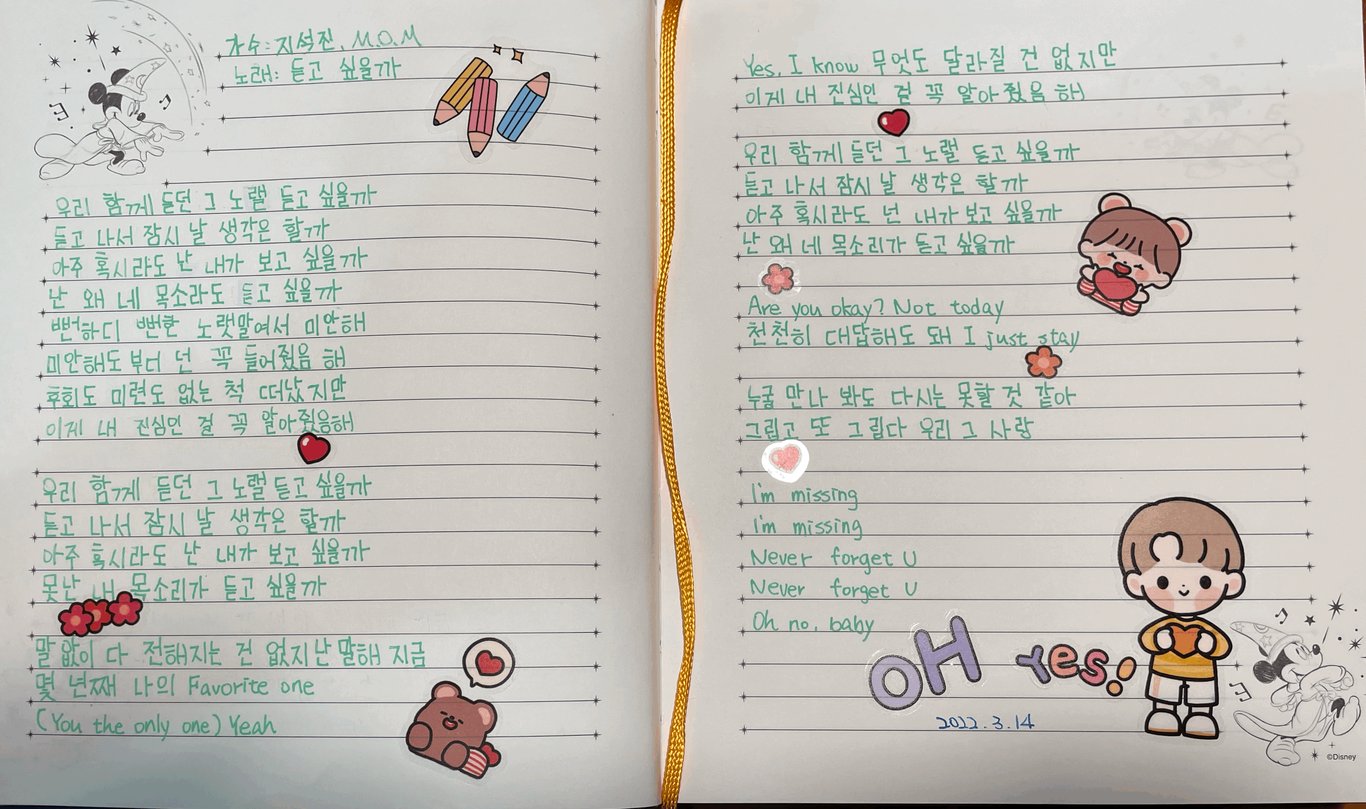 가수: 지석진, M.O.M
노래: 듣고 싶을까
우리 함께 듣던 그 노랠 듣고 싶을까
듣고 나서 잠시 날 생각은 할까
아주 혹시라도 난 내가 보고 싶을까
난 왜 네 목소라도 듣고 싶을까
뻔하디 뻔한 노랫말여서 미안해
미안해도 부터 넌 꼭 들어줬음 해
후회도 미련도 없는 척 떠났지만
이게 내 진심인 걸 꼭 알아줬음해
우리 함께 듣던 그 노랠 듣고 싶을까
듣고 나서 잠시 날 생각은 할까
아주 혹시라도 난 내가 보고 싶을까
못난 내 목소리가 듣고 싶을까
말 없이 다 전해지는 건 없지 난 말해 지금
몇 년째 나의 Favorite one
(You the only one) Yeah
Yes, I know 무엇도 달라질 건 없지만
이게 내 진심인 걸 꼭 알아 줬음 해
우리 함께 듣던 그 노랠 듣고 싶을까
듣고 나서 잠시 날 생각은 할까
아주 혹시라도 넌 내가 보고 싶을까
난 왜 네 목소리가 듣고 싶을까
Are you okay? Not today
천천히 대답해도 돼 I just stay
누굴 만나 봐도 다시는 못할 것 같아
그립고 또 그립다 우리 그 사랑
I'm missing
I'm missing
Never forget U
Never forget U
Oh no, baby
OH Yes!
2022.3.14
©Disney